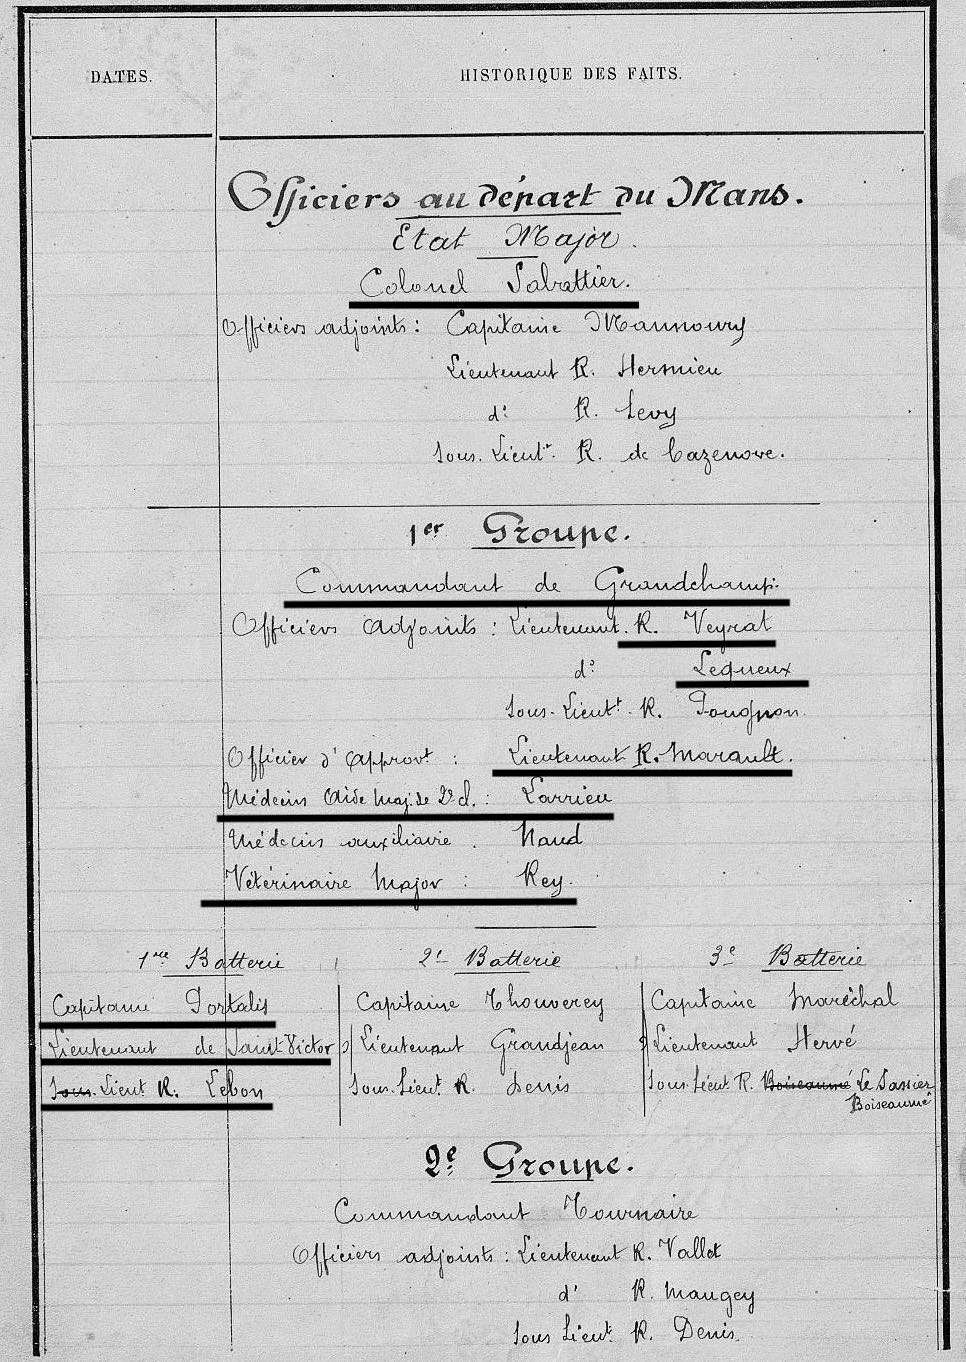 DATES.
HISTORIQUE DES FAITS.
Officiers au départ du Mans.
Etat Major.
Colonel Sabattier.
Officiers adjoints : Capitaine Mannoury
Lieutenant R. Hermieu
d° R. Levy
Sous. Lieutt. R. de Cazenove.
1er Groupe.
Commandant de Grandchamp.
Officiers adjoints : Lieutenant. R. Veyrat
d° Lequeux
Sous-Lieutt. R. Pougnon.
Officier d'approvt : Lieutenant R. Marault.
Médecin aide maj. de 2e cl. : Larrieu
Médecin auxiliaire . Naud
Vétérinaire Major : Rey.
1ere Batterie
2e Batterie
3e Batterie
Capitaine Portalis
Capitaine Thouverey
Capitaine Maréchal
Lieutenant de Saint Victor
Lieutenant Grandjean
Lieutenant Hervé
Sous. Lieut. R. Lebon
Sous. Lieut. R. Denis
Sous. Lieut. R. Boiseaumé Le
Boiseaumé
2e. Groupe.
Commandant Tournaire
Officiers adjoints : Lieutenant R. Vallot
d° R. Maugey
Sous Lieut. R. Denis.